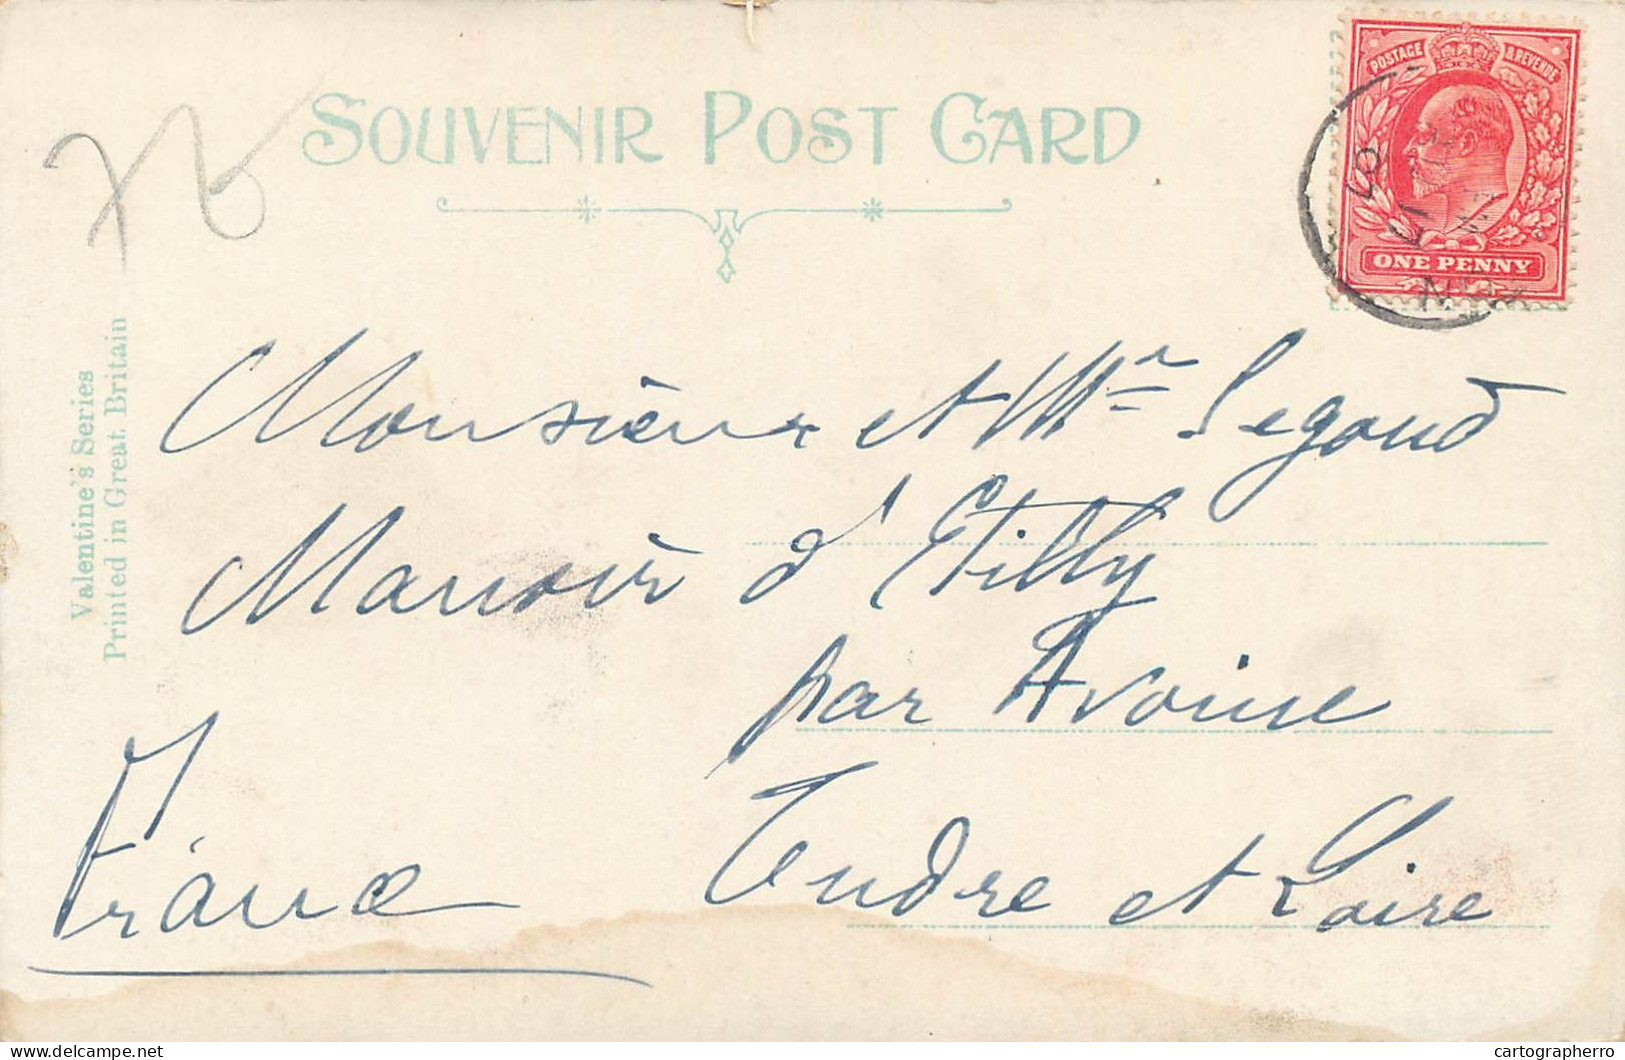 SOUVENIR POST CARD
POSTAGE & REVENUE
ONE PENNY
Valentine's Series
Printed in Great Britain
Monsieur et Mme Segoud
Manoir d'Etilly
par Avoine
Indre et Loire
France
cartographerro